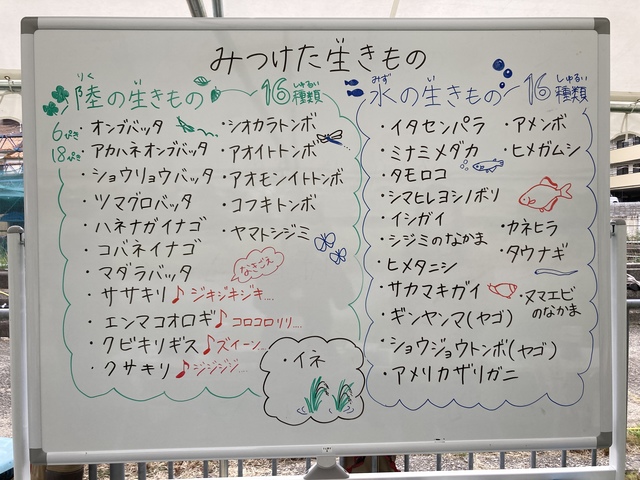 みつけた生きもの
りく
陸の生きもの
しゅるい
16種類
6ぴき
・オンブバッタ
18ぴき
・アカハネオンブバッタ
・ショウリョウバッタ
・ツマグロバッタ
・ハネナガイナゴ
・コバネイナゴ
・マダラバッタ
なきごえ
・ササキリ♪ジキジキジキ....
・エンマコオロギ♪コロコロリリ....
・クビキリギス♪ズィーン...
・クサキリ♪ジジジジ....
・シオカラトンボ
・アオイトトンボ
・アオモンイトトンボ
・コフキトンボ
・ヤマトシジミ
・イネ
みず
水の生きもの
しゅるい
16種類
・イタセンパラ
・ミナミメダカ
・タモロコ
・シマヒレヨシノボリ
・イシガイ
・シジミのなかま
・ヒメタニシ
・サカマキガイ
・ギンヤンマ(ヤゴ)
・ショウジョウトンボ(ヤゴ)
・アメリカザリガニ
・アメンボ
・ヒメガムシ
・カネヒラ
・タウナギ
・ヌマエビ
のなかま